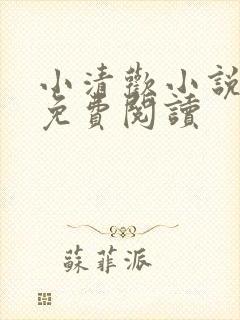 小清歡小說
免費閱讀
蘇菲派